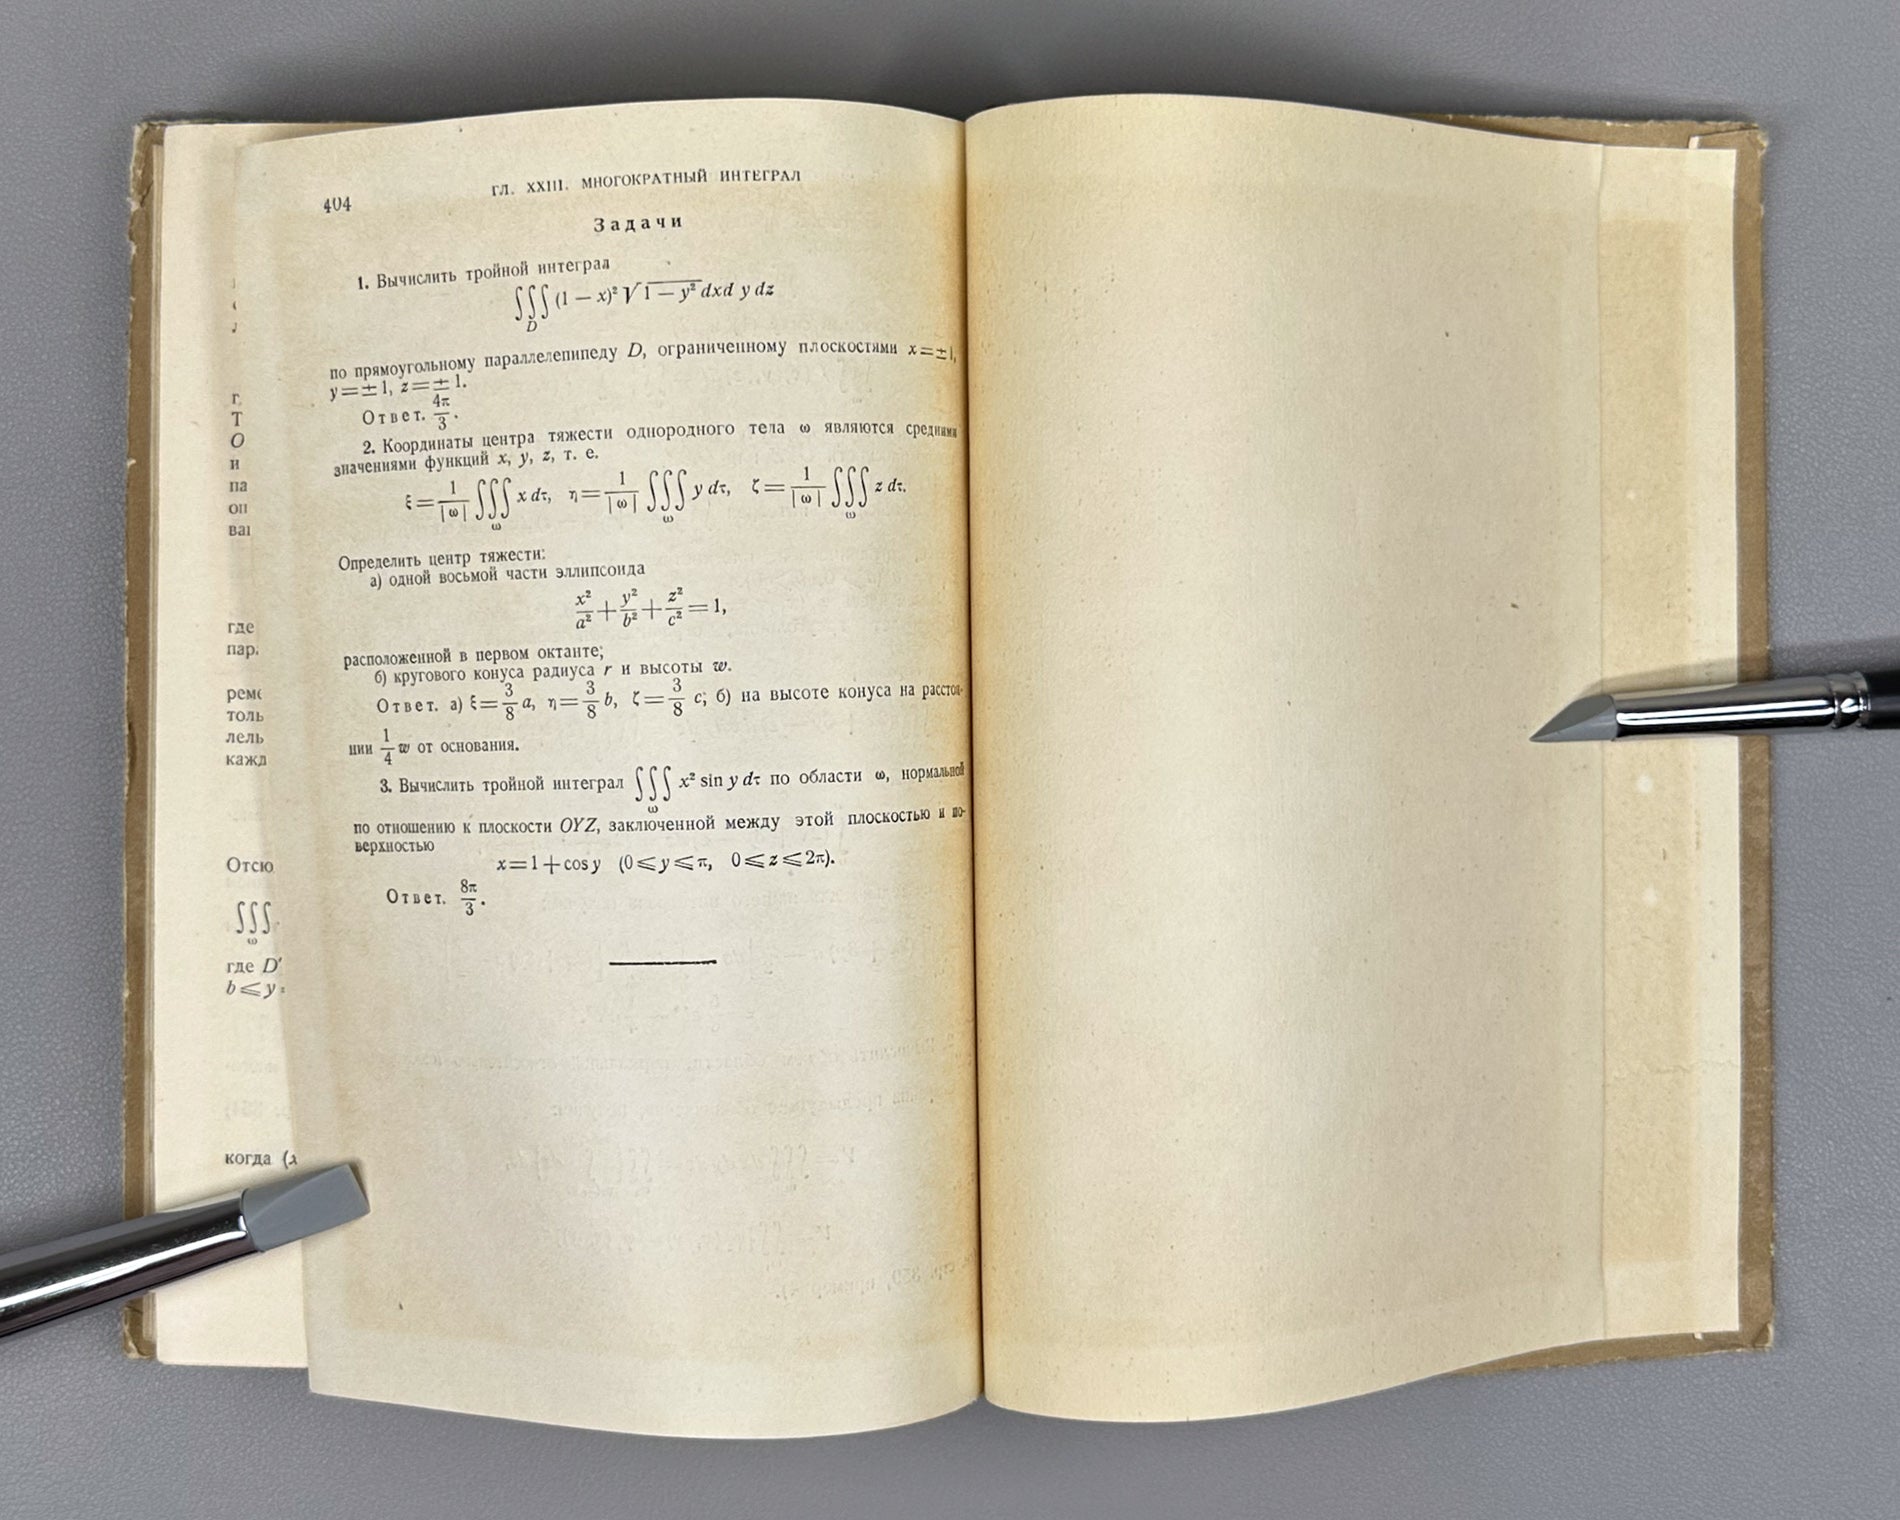 404
ГЛ. XXIII. МНОГОКРАТНЫЙ ИНТЕГРАЛ
Задачи
1. Вычислить тройной интеграл
∫∫∫ (1 — x)² √1 — y² dxd y dz
D
по прямоугольному параллелепипеду D, ограниченному плоскостями x = ± 1,
y = ± 1, z = ± 1.
Ответ. 4π/3.
2. Координаты центра тяжести однородного тела ω являются средними
значениями функций x, y, z, т. е.
ξ = 1/|ω| ∫∫∫ x dτ, η = 1/|ω| ∫∫∫ y dτ, ζ = 1/|ω| ∫∫∫ z dτ.
ω ω ω
Определить центр тяжести:
а) одной восьмой части эллипсоида
x²/a² + y²/b² + z²/c² = 1,
расположенной в первом октанте;
б) кругового конуса радиуса r и высоты w.
Ответ. а) ξ = 3/8 a, η = 3/8 b, ζ = 3/8 c; б) на высоте конуса на расстоя-
нии 1/4 w от основания.
3. Вычислить тройной интеграл ∫∫∫ x² sin y dτ по области ω, нормальной
ω
по отношению к плоскости OYZ, заключенной между этой плоскостью и по-
верхностью
x = 1 + cos y (0 ⩽ y ⩽ π, 0 ⩽ z ⩽ 2π).
Ответ. 8π/3.
г
Т
О
и
па
оп
ваі
где
пар.
реме
толь
лель
кажд
Отсю
∫∫∫
ω
где D'
b ⩽ y
когда (x